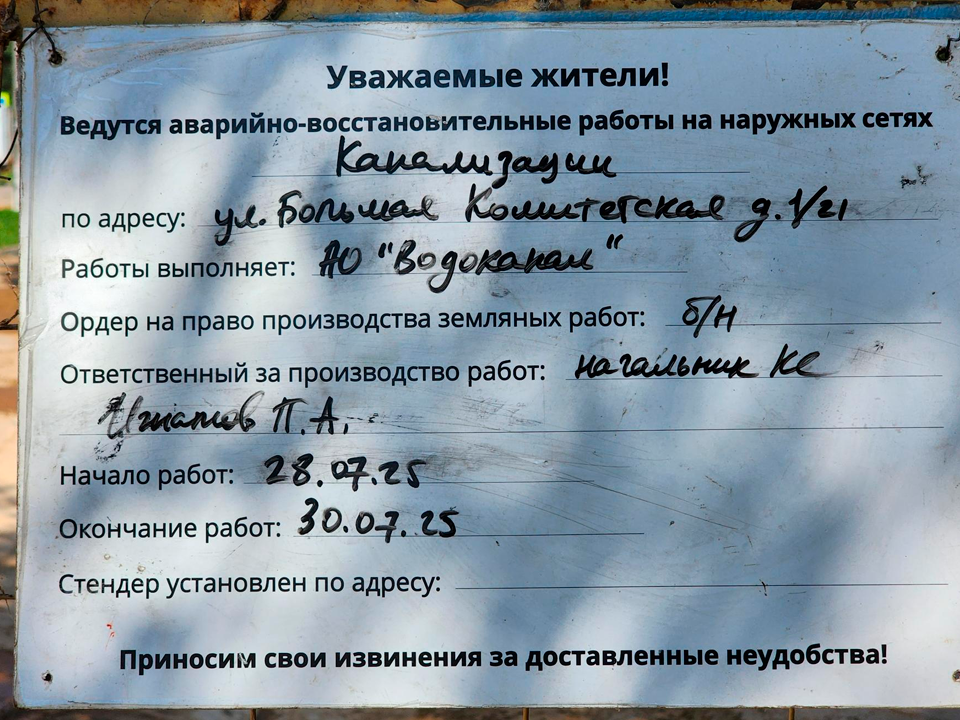 Уважаемые жители!
Ведутся аварийно-восстановительные работы на наружных сетях
Канализации
по адресу: ул. Большая Комитетская д. 1/21
Работы выполняет: АО "Водоканал"
Ордер на право производства земляных работ: б/н
Ответственный за производство работ: начальник КС
Игнатов П.А.
Начало работ: 28.07.25
Окончание работ: 30.07.25
Стендер установлен по адресу:
Приносим свои извинения за доставленные неудобства!